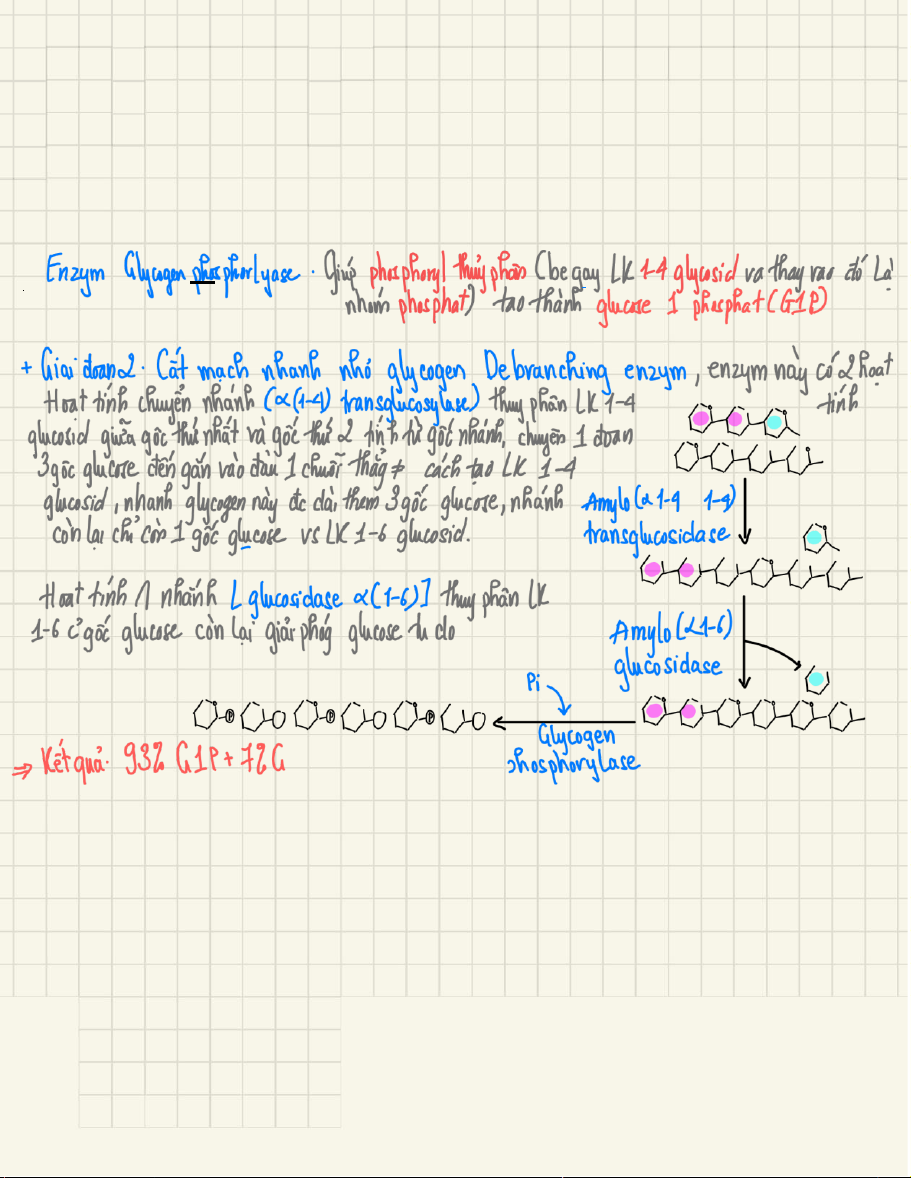 Enzym Glycogen phosphorlyase · Giúp phosphoryl thủy phân (be gay LK 1-4 glycosid va thay vao đó Là
nhóm phosphat) tao thành glucose 1 phosphat (G1P)
+ Giai đoan 2 · Cắt mạch nhanh nhờ glycogen Debranching enzym, enzym này có 2 hoạt
tính
Hoat tính chuyển nhánh (α(1-4) transglucosylase) thuy phân LK 1-4
glucosid giữa gôc thứ nhất và gốc thứ 2 tính từ gốc nhánh, chuyên 1 đoan
3 gôc glucose đến gắn vào đầu 1 chuỗi thẳg ≠ cách tạo LK 1-4
glucosid, nhanh glycogen này đc dài them 3 gốc glucose, nhánh
còn lại chỉ còn 1 gốc glucose vs LK 1-6 glucosid.
Hoat tính nhánh [glucosidase α(1-6)] thuy phân LK
1-6 gốc glucose còn lại giải phóg glucose tu do
Amylo (α 1-4 1-4)
transglucosidase
Amylo (α1-6)
glucosidase
Pi
Glycogen
phosphorylase
P P P
⇒ Kết quả: 93% G1P + 7% G